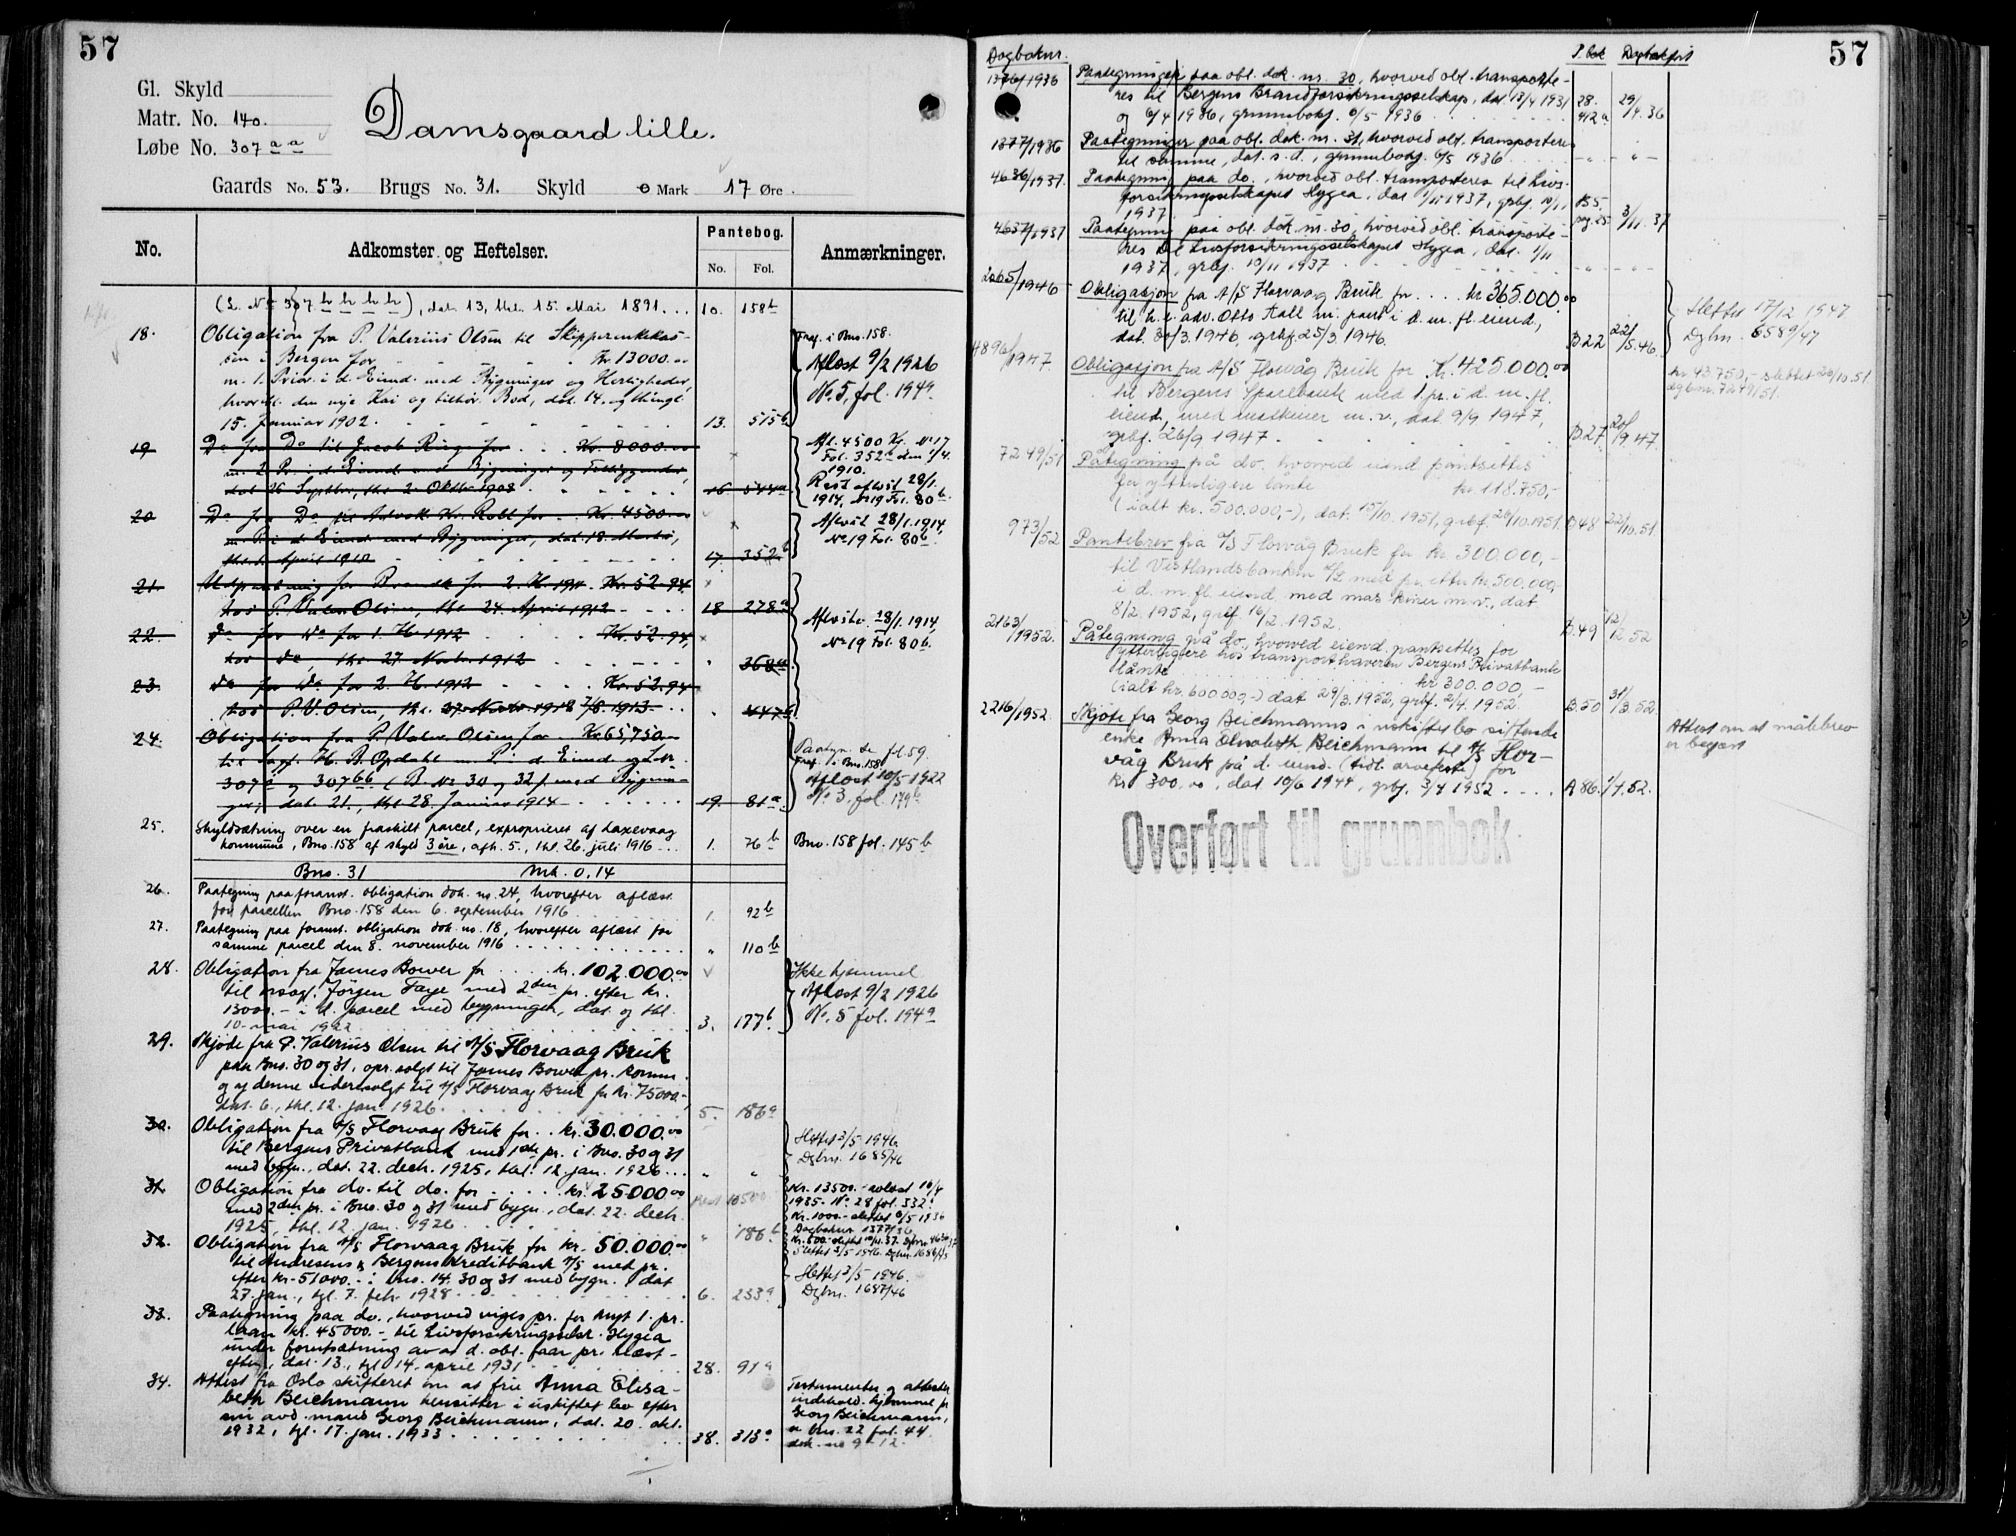 57
Gl. Skyld
Matr. No. 140.
Løbe No. 307 a a
Damsgaard lille.
Gaards No. 53. Brugs No. 31. Skyld 0 Mark 17 Øre.
No. Adkomster og Heftelser. Pantebog. No. Fol. Anmærkninger.
(L. No 307 h h h h), dat. 13, thl. 15. Mai 1891... 10. 158b
18. Obligation fra P. Valerius Olsen til Skipperenkekas-
sen i Bergen for Kr. 13000.00
m. 1. Prior. i d. Eiend. med Bygninger og Herligheder,
hvortil den nye Kai og tilhør. Bod, dat. 14. og thingl.
15. Januar 1902. 13. 515b
Aflæst 9/2 1926
No. 5, fol. 194a
19 Do fra Do til Jacob Ring for Kr. 8000.00
m. 2 Pr. i d. Eiend. med Bygninger og Tilliggender,
dat. 26 Septbr., thl. 2. Oktbr 1908. 16 544a
Afl. 4500 Kr. No 17
Fol. 352b den 1/4.
1910.
Rest aflæst 28/1.
1914, No 19 Fol. 80b.
20 Do fra Do til Advok. Kr. Kr. 4500.00
m. Pr. i d. Eiend. med Bygninger, dat. 18. Marts,
thl. 1. April 1910 17. 352b
Aflæst 28/1.1914,
No 19 Fol. 80b.
21. Udpantning for 2. H. 1911. Kr. 52.94
hos P. Valer. Olsen, thl. 24. April 1912. 18 278a
22. Do for Do for 1. H. 1912 Kr. 52.94,
hos Do, thl. 27. Novbr. 1912 " 368a
Aflæste 28/1.1914,
No 19 Fol. 80b.
23. Do for Do for 2. H. 1912 Kr. 52.94
hos P. V. Olsen, thl. 7/8. 1913. " 447b
24. Obligation fra P. Valer. Olsen for Kr 65,750.-
til Sagf. H. B. Opdahl m. Pr. i d. Eiend. og L. No
307 a og 307 bb (B. No 30 og 32) med Bygnin-
ger, dat. 21., thl 28. Januar 1914 19. 81a.
Paategn. se fl 59.
Fraf. i Bno. 158
Aflæst 10/5 1922
No. 3, fol. 179b
25. Skyldsætning over en fraskilt parcel, exproprieret af Laxevaag
kommune, Bno. 158 af skyld 3 øre, afh. 5., thl. 26. juli 1916 ... 1. 76b
Bno. 158 fol. 145b
Bno. 31 Mk. 0,14
26. Paategning paa foranst. obligation dok. no. 24, hvorefter aflæst
for parcellen Bno. 158 den 6. september 1916 1. 92b
27. Paategning paa foranst. obligation dok. no. 18, hvorefter aflæst for
samme parcel den 8. november 1916 " 110b
28. Obligation fra James Bower for kr. 102.000.00
til orsagf. Jörgen Faye med 2den pr. efter kr.
13000.- i d. parcel med bygninger, dat. og thl.
10. mai 1922 3. 177b
Ikke hjemmel
Aflæst 9/2 1926
No. 5 fol. 194a
29. Skjöte fra P. Valerius Olsen til A/S Florvaag Bruk
paa Bno. 30 og 31, opr. solgt til James Bower pr. komm.
og af denne videresolgt til A/S Florvaag Bruk for kr. 75000.-,
dat. 6., thl. 12. jan. 1926. 5. 186a
30. Obligation fra A/S Florvaag Bruk for .. kr. 30.000.00
til Bergens Privatbank med 1ste pr. i Bno. 30 og 31
med bygn., dat. 22. decb. 1925, thl. 12 jan. 1926... " "
Slettet 3/5 1946
Dgbnr. 1685/46
31. Obligation fra do. til do. for kr. 25000.00
med 2den pr. i Bno. 30 og 31 med bygn., dat. 22. decb.
1925, thl. 12. jan. 1926. " 186b
Rest 10500
Kr. 13500.- avlæst 16/4
1935. No. 28 fol. 332.
Kr. 1000.- slettet 6/5 1936
Dagboknr. 1377/36.
Slettet 3/5 1946. Dgbnr. 1686/46
32. Obligation fra A/S Florvaag Bruk for kr. 50.000.00
til Andresens & Bergens Kreditbank A/S med pr.
efter kr. 51000.- i Bno. 14. 30 og 31 med bygn. dat.
27. jan., tgl. 7. feb. 1928. 6. 233a
Slettet 3/5 1946.
Dgbnr. 1687/46
33. Paategning paa do., hvorved viges pr. for nytt 1. pr.
laan kr. 45000.- til Livsforsikringsselsk. Hygea
under forutsætning av at d. obl. faar pr. næst-
efter, dat. 13., tgl. 14. april 1931 28. 91a
34. Attest fra Oslo skifteret om at frue Anna Elisa-
beth Beichmann hensitter i uskiftet bo efter
sin avd. mand Georg Beichmann, dat. 20. okt.
1932, tgl. 17. jan. 1933. 38. 313a
Testamenter og attester
indehold. hjemmel for
Georg Beichmann,
se bno. 22 fol. 44.
dok. no 9-12.
57
Dagboknr. P. bok Dagbokført
1376/1936 Paategninger paa obl. dok. nr. 30, hvorved obl. transporte-
res til Bergens Brandforsikringsselskap, dat. 13/4 1931
og 6/4 1936, grunnbokf. 6/5 1936 28. 412a 29/4.36
1377/1936 Paategninger paa obl. dok. nr. 31, hvorved obl. transporteres
til samme, dat. s. d., grunnbokf. 6/5 1936 - " - - " -
4636/1937. Paategning paa do., hvorved obl. transporteres til Livs-
forsikringsselskapet Hygea, dat. 1/11 1937, grbf. 10/11
1937. B5. pag. 25 3/11. 37
4637/1937 Paategning paa obl. dok. nr. 30, hvorved obl. transporte-
res til Livsforsikringsselskapet Hygea, dat. 1/11
1937, grbf. 10/11 1937 - " - - " -
2065/1946 Obligasjon fra A/S Florvaag Bruk for .... kr. 365.000.00
til h.r. adv. Otto Aall m. pant i d. m. fl. eiend.,
dat. 30/3. 1946, grbf. 25/3 1946. B22 22/5.46.
Slettet 17/12 1947
Dgbnr. 6589/47
4896/1947. Obligasjon fra A/S Florvåg Bruk for Kr. 425.000.00
til Bergens Sparebank med 1. pr. i d. m. fl.
eiend. med maskiner m. v., dat. 9/9 1947,
grbf. 26/9 1947. B.27 20/9 47
kr. 43.750,- slettet 26/10.51.
dgbnr. 7249/51.
7249/51 Påtegning på do. hvorved eiend. pantsettes
for ytterligere lånte kr. 118.750,-
(ialt kr. 500.000,-), dat. 15/10. 1951, grbf. 26/10.1951. B48 22/10.51
973/52 Pantebrev fra A/S Florvåg Bruk for kr. 300.000,-
til Vestlandsbanken A/S med pr. etter kr. 500.000,-
i d. m. fl. eiend. med maskiner m.v., dat.
8/2. 1952, grbf. 16/2. 1952. B.49 12/2.52
2163/1952. Påtegning på do., hvorved eiend. pantsettes for
ytterligere hos transporthaveren Bergens Privatbank
lånte kr. 300.000,-
(ialt kr. 600.000,-) dat. 29/3. 1952, grbf. 2/4. 1952. B.50 31/3.52.
2216/1952. Skjøte fra Georg Beichmanns i uskiftet bo sittende
enke Anna Elisabeth Beichmann til A/S Flor-
våg Bruk på d. eiend. (tidl. arvefeste) for
kr. 300.00, dat. 10/6 1944, grbf. 3/4 1952 .... A 86. 1/4.52.
Attest om at målebrev
er begjært
Overført til grunnbok